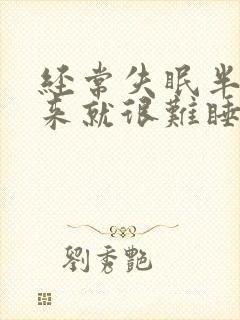 经常失眠半
来就很難睡
劉秀艷